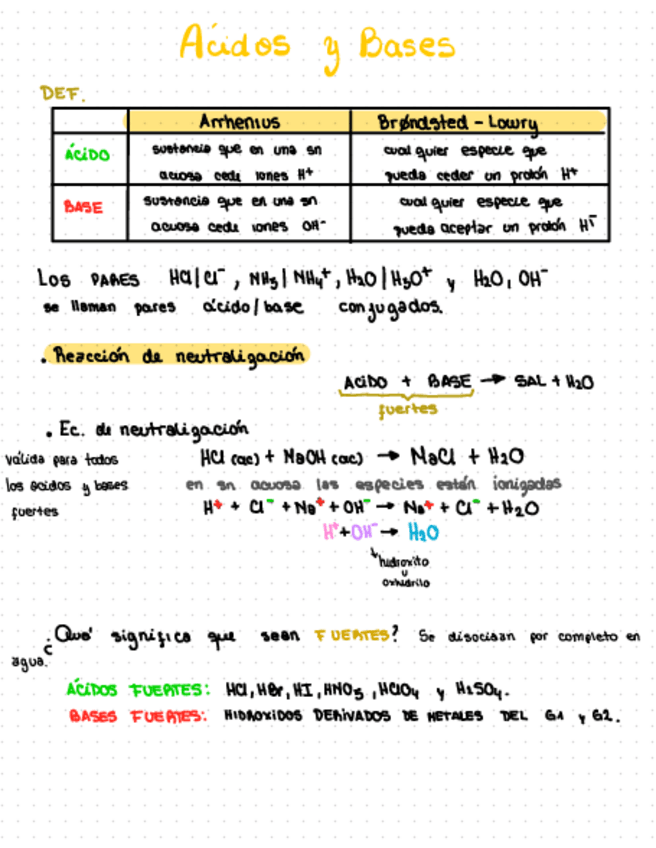 Ácidos y Bases
DEF.
Arrhenius
Brøndsted - Lowry
ÁCIDO
sustancia que en una sn
acuosa cede iones H⁺
cualquier especie que
pueda ceder un protón H⁺
BASE
sustancia que en una sn
acuosa cede iones OH⁻
cualquier especie que
pueda aceptar un protón H⁺
LOS PARES HCl/Cl⁻, NH₃/NH₄⁺, H₂O/H₃O⁺ y H₂O, OH⁻
se llaman pares ácido/base conjugados.
. Reacción de neutralización
ÁCIDO + BASE → SAL + H₂O
fuertes
. Ec. de neutralización
válida para todos
los ácidos y bases
fuertes
HCl (ac) + NaOH (ac) → NaCl + H₂O
en sn acuosa las especies están ionizadas
H⁺ + Cl⁻ + Na⁺ + OH⁻ → Na⁺ + Cl⁻ + H₂O
H⁺ + OH⁻ → H₂O
hidroxito
u
oxhidrilo
¿Qué significa que sean FUERTES? Se disocian por completo en
agua.
ÁCIDOS FUERTES: HCl, HBr, HI, HNO₃, HClO₄ y H₂SO₄.
BASES FUERTES: HIDROXIDOS DERIVADOS DE METALES DEL G1 y G2.